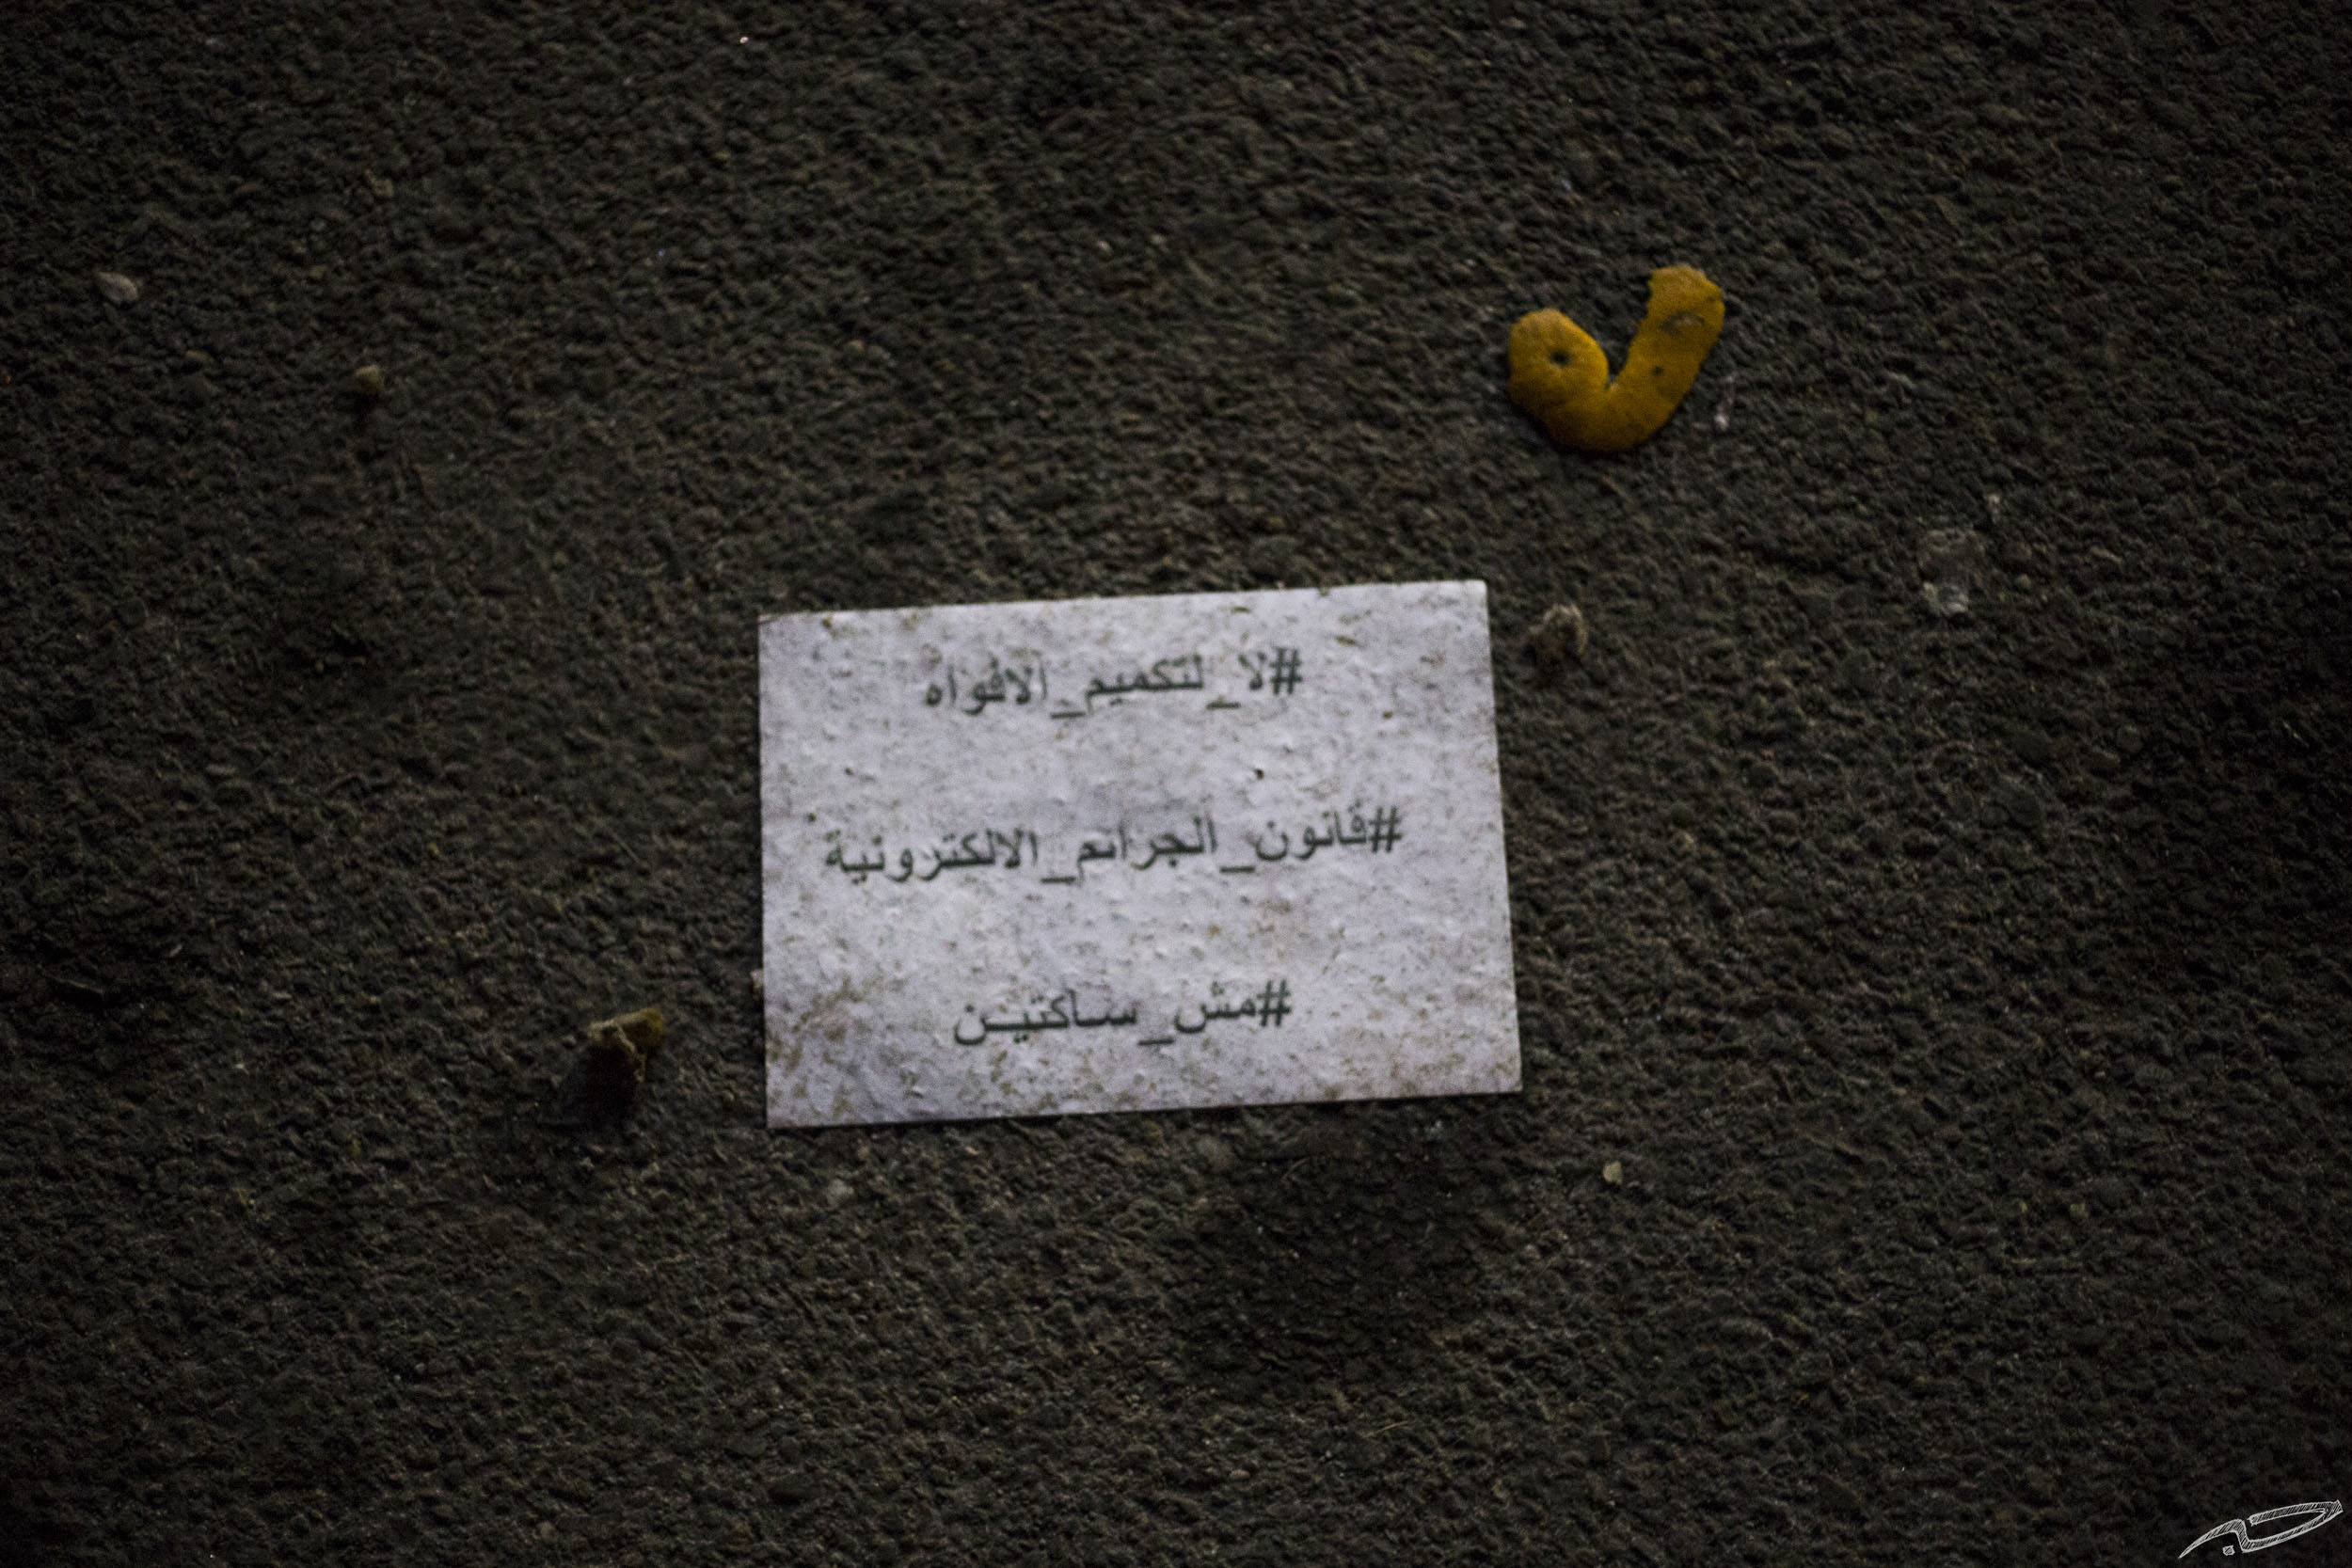 #لا_لتكميم_الافواه
#قانون_الجرائم_الالكترونية
#مش_ساكتين